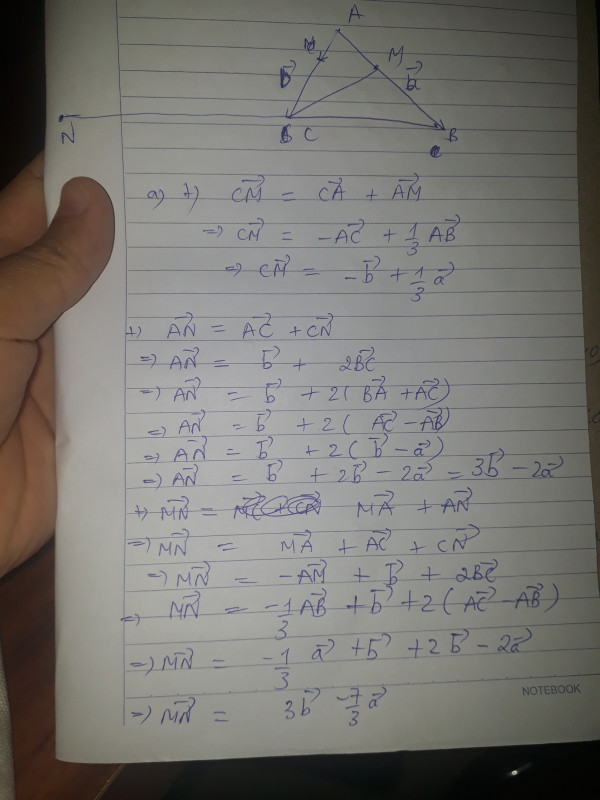 A
M
b⃗
a⃗
N
C
B
a) +) CM⃗ = CA⃗ + AM⃗
=> CM⃗ = -AC⃗ + 1/3 AB⃗
=> CM⃗ = -b⃗ + 1/3 a⃗
+) AN⃗ = AC⃗ + CN⃗
=> AN⃗ = b⃗ + 2BC⃗
=> AN⃗ = b⃗ + 2(BA⃗ + AC⃗)
=> AN⃗ = b⃗ + 2(AC⃗ - AB⃗)
=> AN⃗ = b⃗ + 2(b⃗ - a⃗)
=> AN⃗ = b⃗ + 2b⃗ - 2a⃗ = 3b⃗ - 2a⃗
+) MN⃗ = MA⃗ + AN⃗
=> MN⃗ = MA⃗ + AC⃗ + CN⃗
=> MN⃗ = -AM⃗ + b⃗ + 2BC⃗
=> MN⃗ = -1/3 AB⃗ + b⃗ + 2(AC⃗ - AB⃗)
=> MN⃗ = -1/3 a⃗ + b⃗ + 2b⃗ - 2a⃗
=> MN⃗ = 3b⃗ -7/3 a⃗
NOTEBOOK